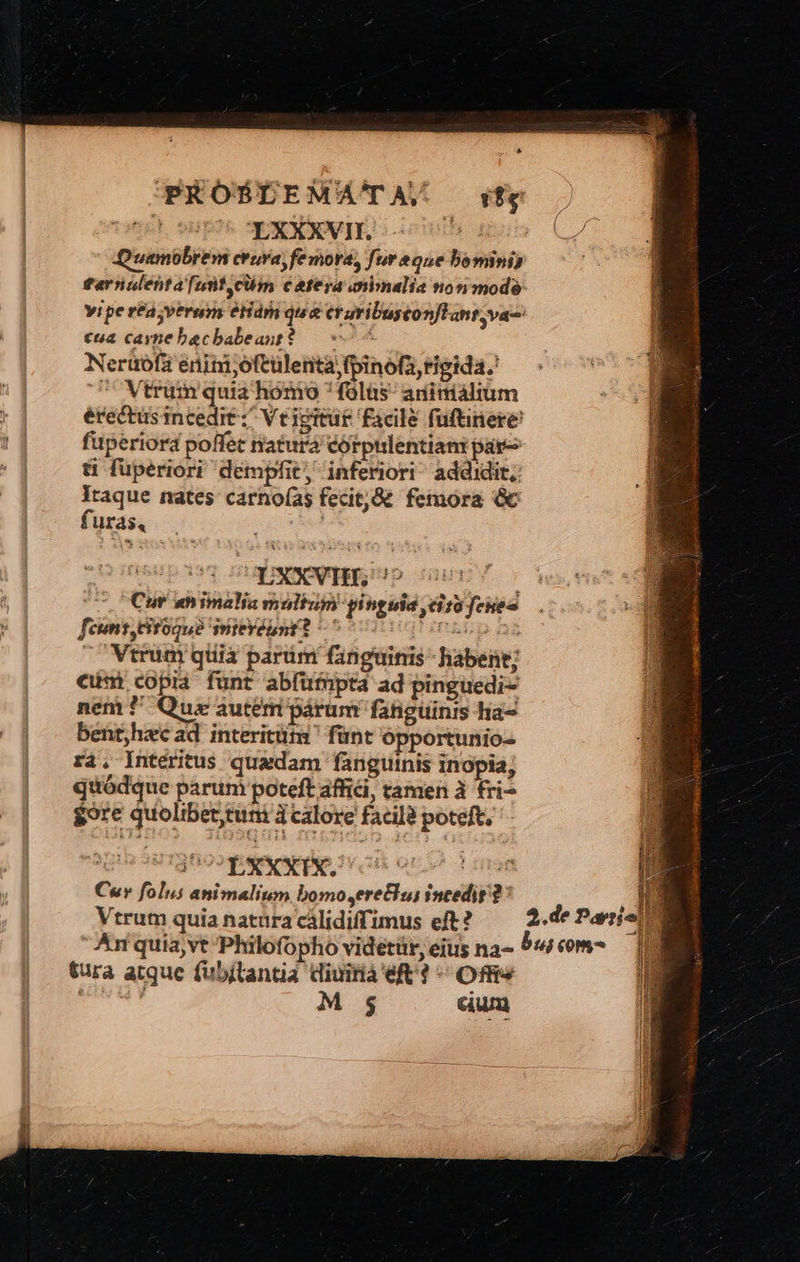 PROBLEMATA. 185
LXXXVII.
Quamobrem crura, femora, suræque hominis
carnulenta sunt, cùm cætera animalia non modò
vipereá, verum etiam quæ cruribus constant, va-
cua carne hæc habeant?
Neruosa enim, ostulenta, spinosa, rigida.
Vtrum quia homo solus animalium
erectus incedit: Vt igitur facilè sustinere
superiora posset natura corpulentiam par-
ti superiori dempsit, inferiori addidit.
Itaque nates carnosas fecit, & femora &
suras.
LXXXVIII.
Cur animalia multum pinguia, citò senes-
scunt, citoque intereunt?
Vtrum quia parùm sanguinis habent,
cùm copia sunt absumpta ad pinguedi-
nem? Quæ autem parum sanguinis ha-
bent, hæc ad interitum sunt opportunio-
ra. Interitus quædam sanguinis inopia,
quòdque parum potest affici, tamen à fri-
gore quolibet, tum à calore facilè potest.
LXXXIX.
Cur solus animalium homo, erectus incedit?
Vtrum quia natura calidissimus est?
2. de Partie
An quia, vt Philosopho videtur, eius na-
bus com-
tura atque substantia diuina est? Offi-
M 5 cium